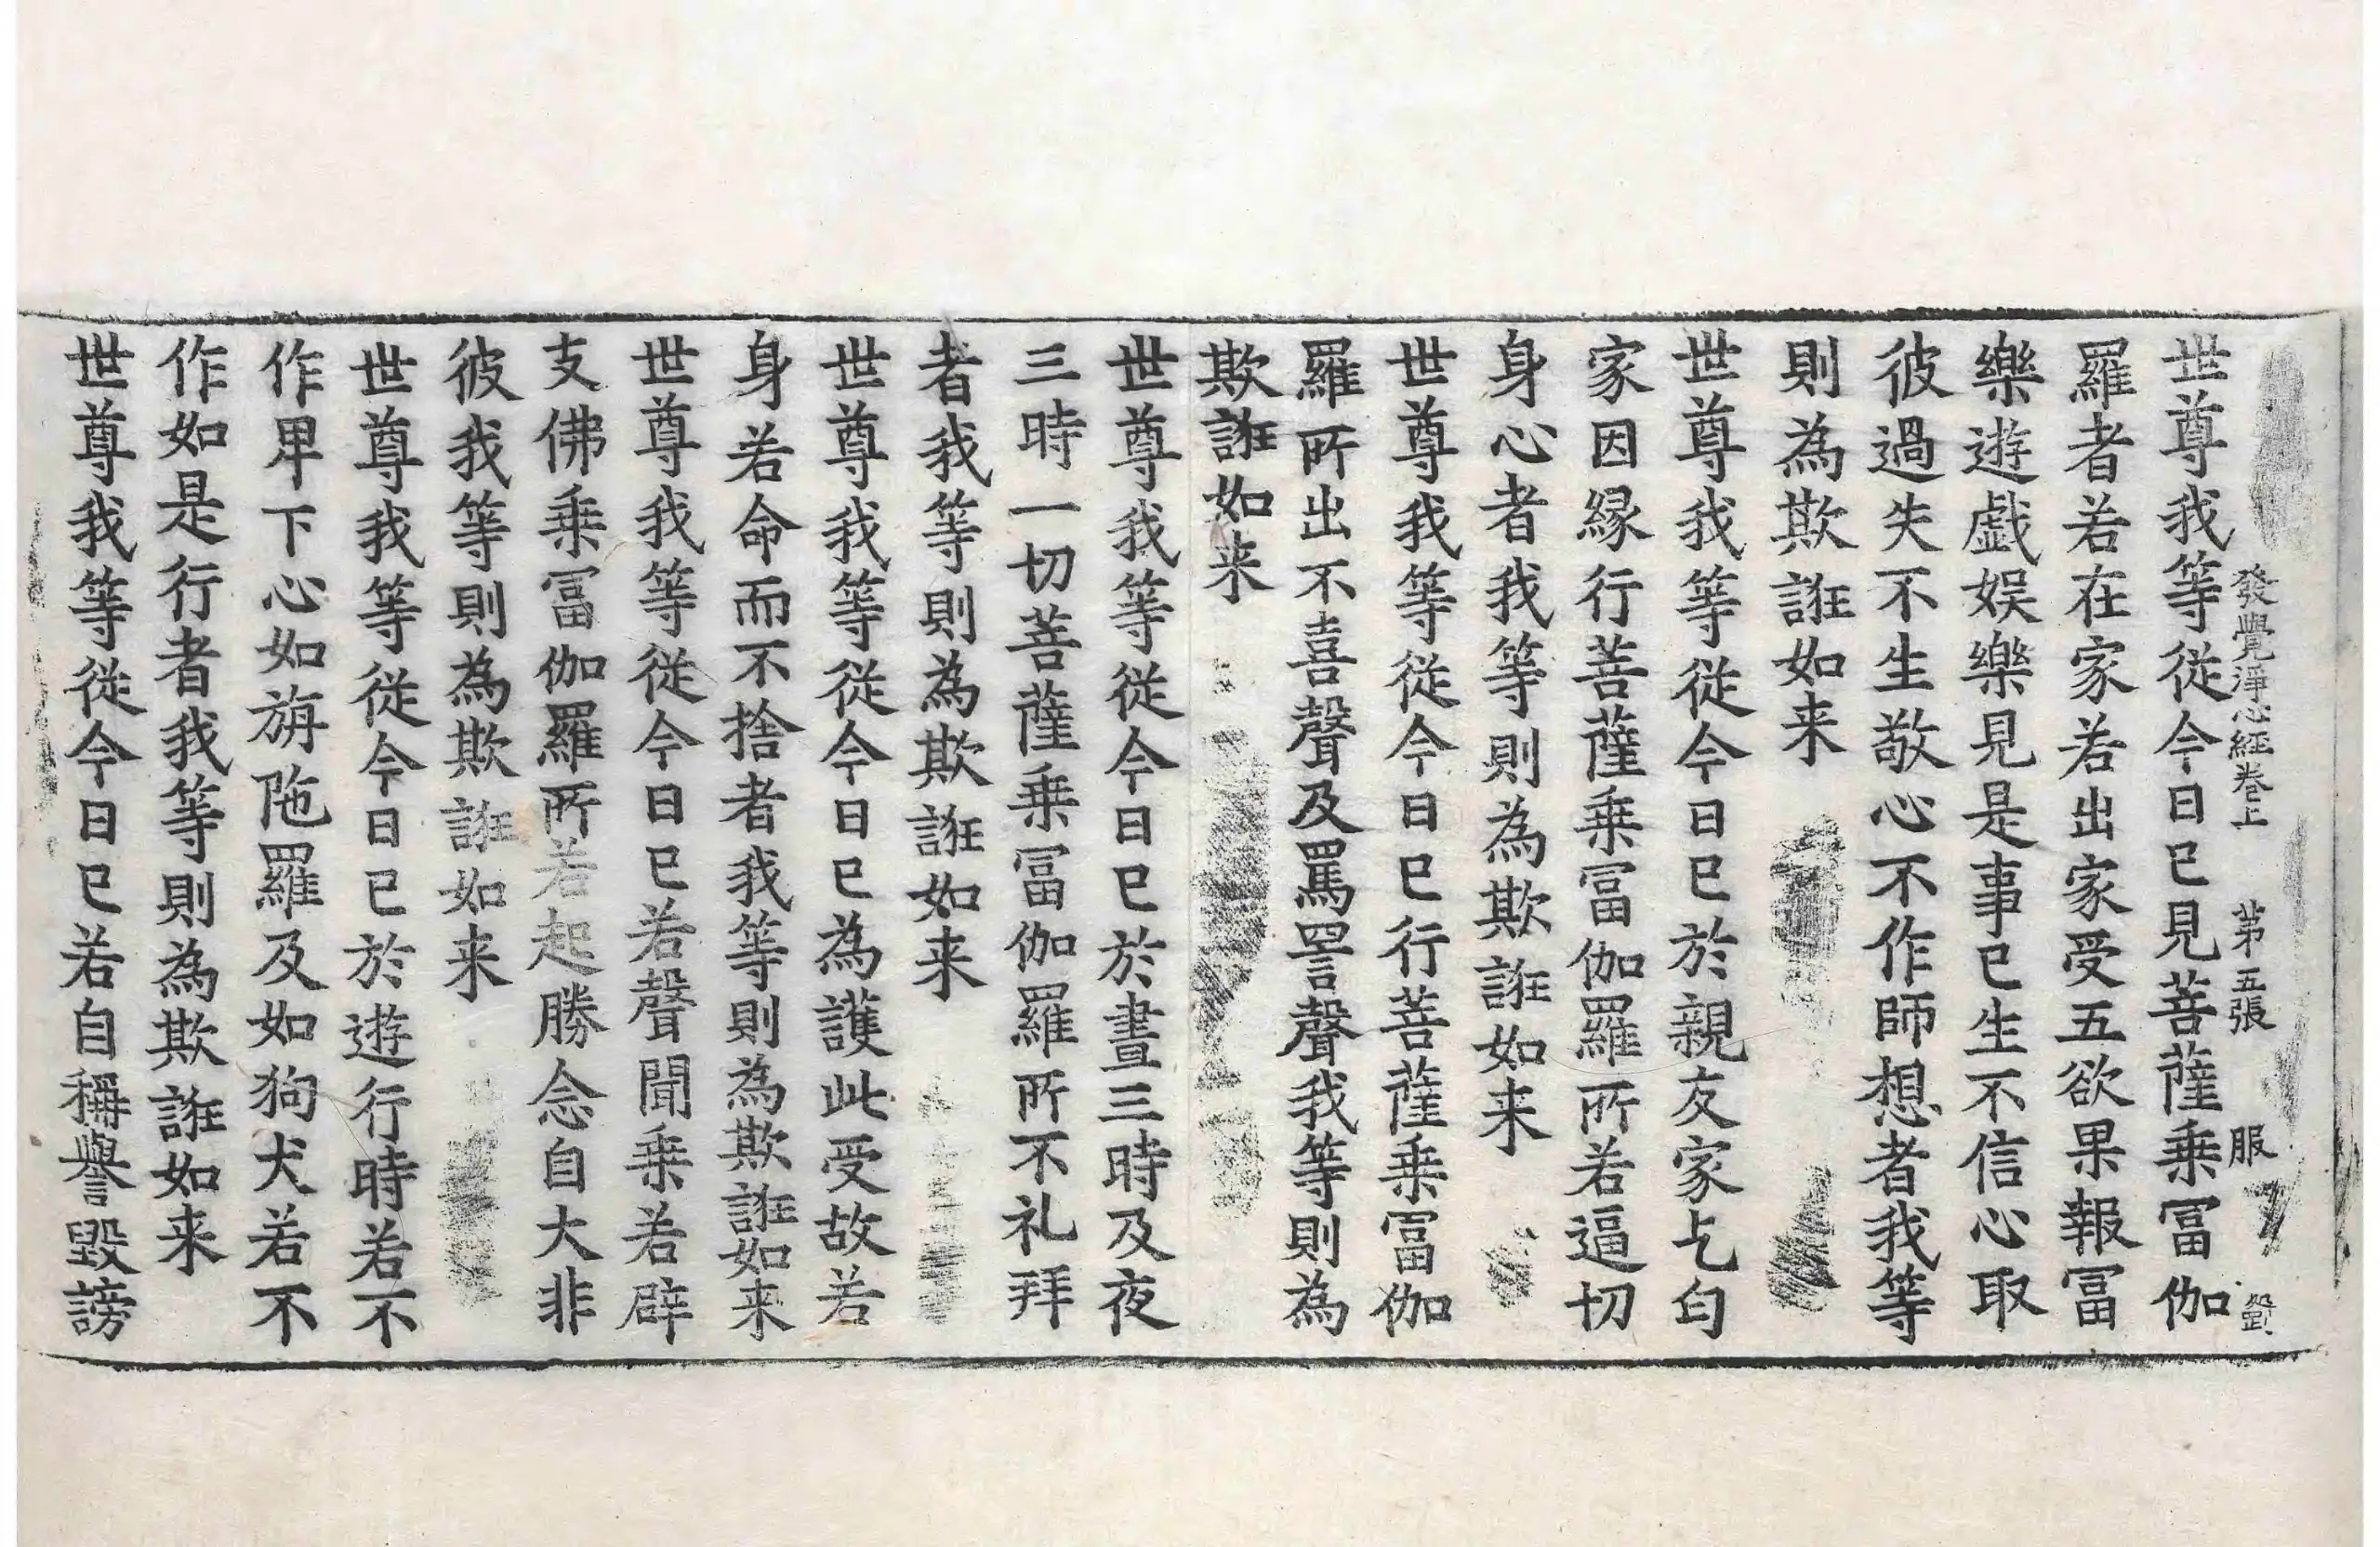 發覺淨心經卷上　第五張　服
世尊我等從今日已見菩薩乗冨伽
羅者若在家若出家受五欲果報冨
樂遊戲娱樂見是事已生不信心取
彼過失不生敬心不作師想者我等
則為欺誑如来
世尊我等從今日已於親友家乞匂
家因縁行菩薩乗冨伽羅所若逼切
身心者我等則為欺誑如来
世尊我等從今日已行菩薩乗冨伽
羅所出不喜聲及罵詈聲我等則為
欺誑如来
世尊我等從今日已於晝三時及夜
三時一切菩薩乗冨伽羅所不礼拜
者我等則為欺誑如来
世尊我等從今日已為護此受故若
身若命而不捨者我等則為欺誑如来
世尊我等從今日已若聲聞乗若辟
支佛乗冨伽羅所若起勝念自大非
彼我等則為欺誑如来
世尊我等從今日已於遊行時若不
作甲下心如旃陁羅及如狗犬若不
作如是行者我等則為欺誑如来
世尊我等從今日已若自稱譽毀謗